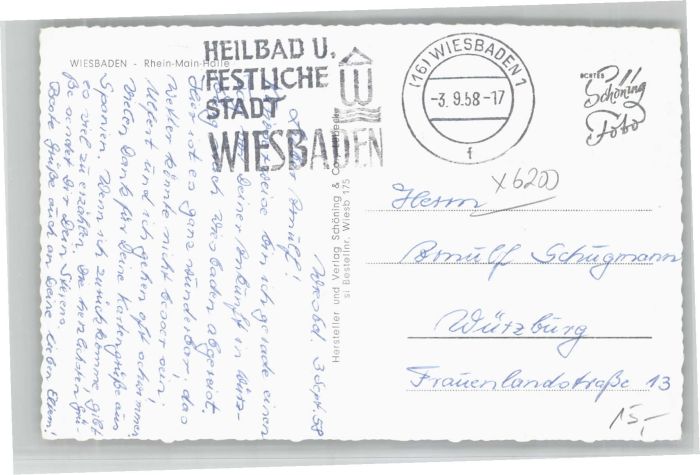 WIESBADEN - Rhein-Main-Halle
HEILBAD U.
FESTLICHE
STADT
WIESBADEN
(16) WIESBADEN 1
-3.9.58-17
f
ECHTES
Schöning
Foto
x 6200
Herrn
Arnulf Schugmann
Würzburg
Frauenlandstraße 13
15,-
Hersteller und Verlag Schöning & Co
si Bestellnr. Wiesb 175
Wiesbd. 3. Sept. 58
Arnulf!
bin ich gerade einen
Deiner Ankunft in Würz-
nach Wiesbaden abgereist.
Hier ist es ganz wunderbar, das
Wetter könnte nicht besser sein.
und ich gehen oft schwimmen.
Vielen Dank für Deine Kartengrüße aus
Spanien. Wenn ich zurückkomme gibt
es viel zu erzählen. Die herzlichsten Grü-
ße sendet Dir Dein
Beste Grüße auch an Deine lieben Eltern!